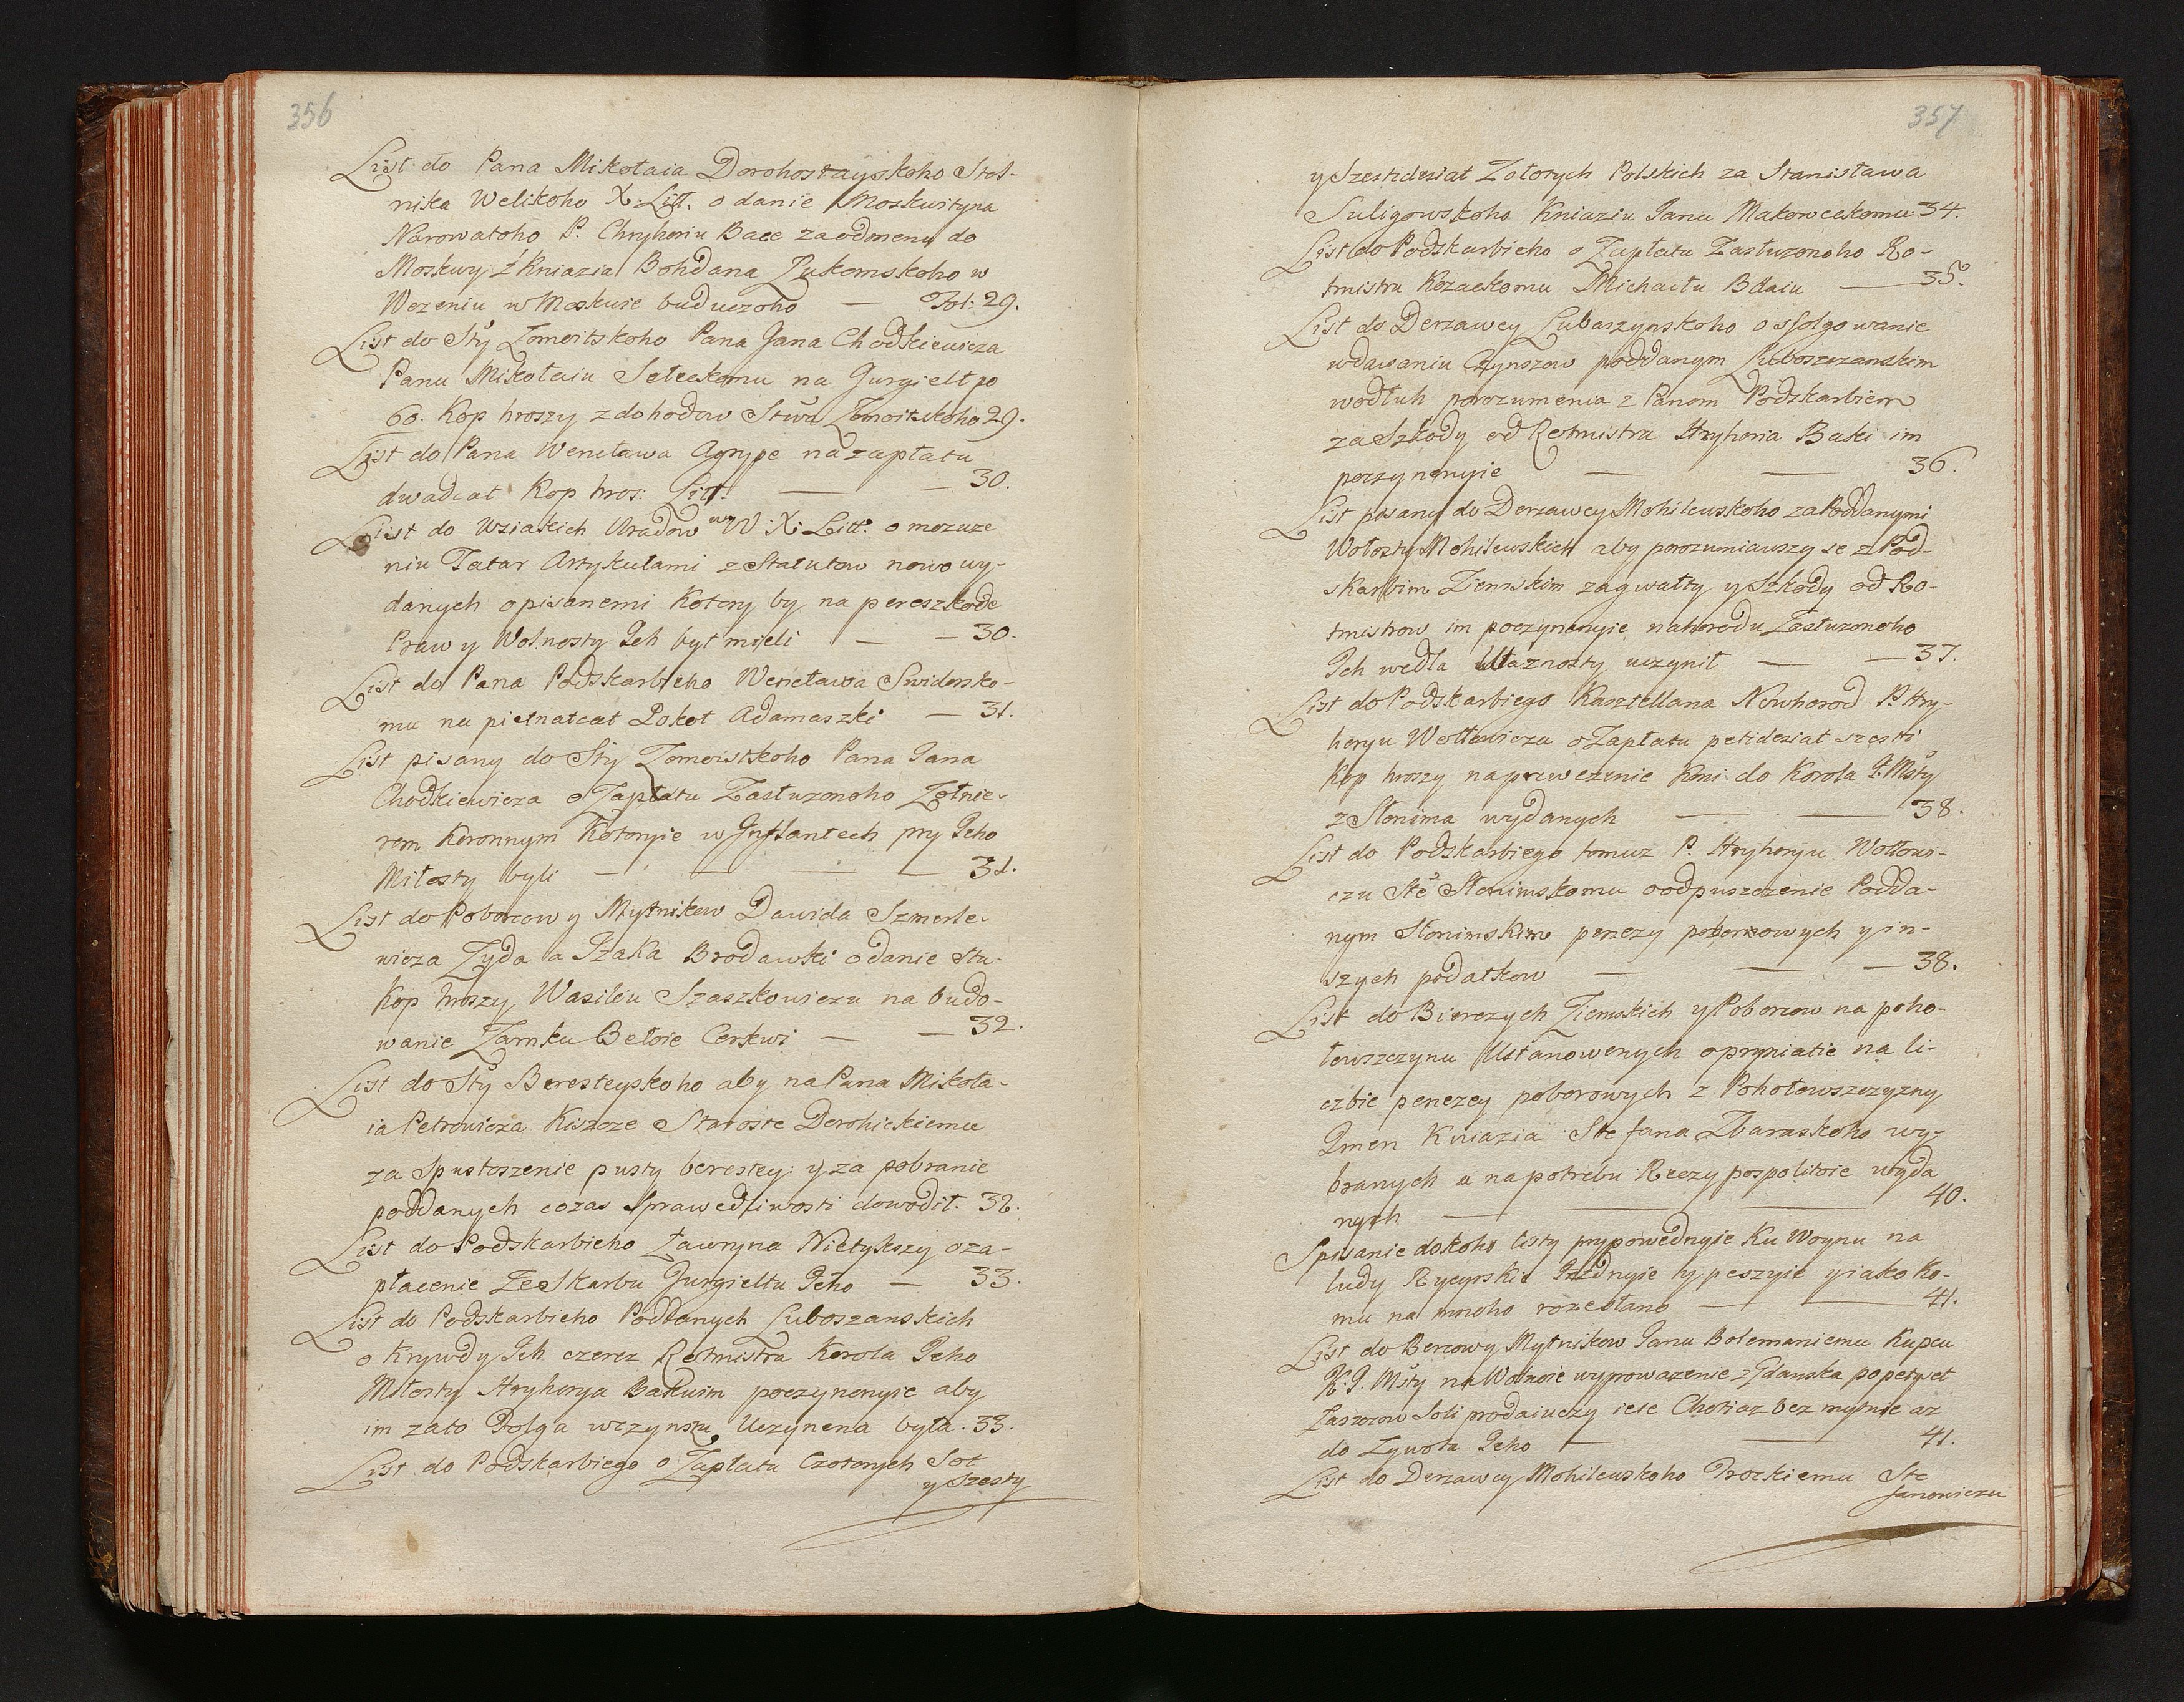 356
List do Pana Mikołaia Dorohostayskoho Stol-
nika Welikoho X. Litt. o danie Moskwityna
Narowatoho P. Chryhoriu Bace za odmenu do
Moskwy z Kniazia Bohdana Łukomskoho w
Wezeniu w Moskwie buduczoho — Fol: 29.
List do Sty Zomoitskoho Pana Jana Chodkiewicza
Panu Mikołaiu Seleckomu na Jurgielt po
60. Kop hroszy z dohodow Stwa Zomoitskoho 29.
List do Pana Wencława Agrype na zapłatu
dwadcat Kop hros: Litt. — — 30.
List do Wsiakich Uradow w W: X: Litt. o
niu Tatar Artykułami z Statutow nowo wy-
danych opisanemi Kotory by na pereszkode
Praw y Wolnosty Ich byt mieli — — 30.
List do Pana Podskarbieho Wencława Swidersko-
mu na pietnatcat Łokot Adamaszki — 31.
List pisany do Sty Zomoistkoho Pana Jana
Chodkiewicza o Zapłatu Zasłuzonoho Zołnie-
rom Koronnym Kotoryie w Inflantech pry Jeho
Miłosty byli — — — — 31.
List do Poborcow y Mytnikow Dawida Szmerle-
wicza Zyda a Izaka Brodawki o danie stu
Kop hroszy Wasileu Szaszkowiczu na budo-
wanie Zamku Bełoie Cerkwi — — 32.
List do Sty Beresteyskoho aby na Pana Mikoła-
ia Petrowicza Kiszcze Staroste Dorohickiemu
za Spustoszenie pusty berestey: y za pobranie
poddanych czas Sprawedliwosti dowodił. 32.
List do Podskarbieho Ławryna Nietykszy o za-
płacenie Ze Skarbu Jurgieltu Jeho — 33.
List do Podskarbieho Poddanych Luboszanskich
o Krywdy Ich czerez Rotmistra Korola Jeho
Miłosty Hryhorya Bakuim poczynenyie aby
im zato Folga w czynszu Uczynena była. 33.
List do Podskarbiego o Zapłatu Czotorych Sot
y Szesty
357
y Szestidesiat Zołotych Polskich za Stanisława
Suligowskoho Kniaziu Janu Makoweckomu 34.
List do Podskarbieho o Zapłatu Zasłuzonoho Ro-
tmistru Kozackomu Michaiłu Bdaiu — 35.
List do Derzawcy Lubaszynskoho o sfolgowanie
w dawaniu Czynszow poddanym Luboszczanskim
wodłuh porozumenia z Panom Podskarbiem
za Szkody od Rotmistra Hryhoria Baki im
poczynenyie — — 36.
List pisany do Derzawcy Mohilewskoho za Poddanymi
Wołosty Mohilewskich aby porozumiawszy se z Pod-
skarbim Ziemskim za gwałty y Szkody od Ro-
tmistrow im poczynenyie nahorodu Zasłuzonoho
Ich wedla Ułaznosty uczynił — — 37.
List do Podskarbiego Kasztellana Nowhorod P. Hry-
horyu Wołłowiczu o Zapłatu petidesiat szesti
Kop hroszy na prewezenie Koni do Korola J. Msty
z Słonima wydanych — — 38.
List do Podskarbiego tomuz P. Hryhoryu Wołłowi-
czu Ste Słonimskomu o odpuszczenie Podda-
nym Słonimskim penezy poborowych y in-
szych podatkow — — — 38.
List do Bierczych Ziemskich y Poborcow na poho-
łowszczynu Ustanowenych o pryniatie na li-
czbie penezey poborowych z Pohołowszczyzny
Imen Kniazia Stefana Zbaraskoho wy-
branych a na potrebu Rzeczy pospolitoie wyda
nych — — — 40.
Spisanie do koho listy prypowednyie Ku Woynu na
ludy Rycyrskie Jezdnyie y peszyie y iako ko-
mu na mnoho rozesłano — — 41.
List do Bercowy Mytnikow Janu Bolemaniemu Kupcu
K. J. Msty na Wolnoie wyprowazenie z Gdanska po petyset
Łasztow Soli prodaiuczy ieie Chotiaz bez mytnie az
do Zywota Jeho — — 41.
List do Derzawcy Mohilewskoho Trockiemu Ste
fanowiczu